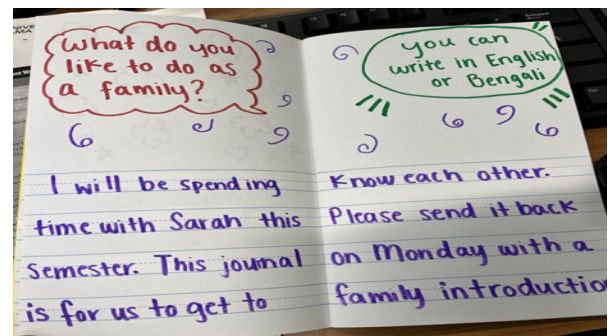 What do you
like to do as
a family?
I will be spending
time with Sarah this
semester. This journal
is for us to get to
you can
write in English
or Bengali
Know each other.
Please send it back
on Monday with a
family introduction